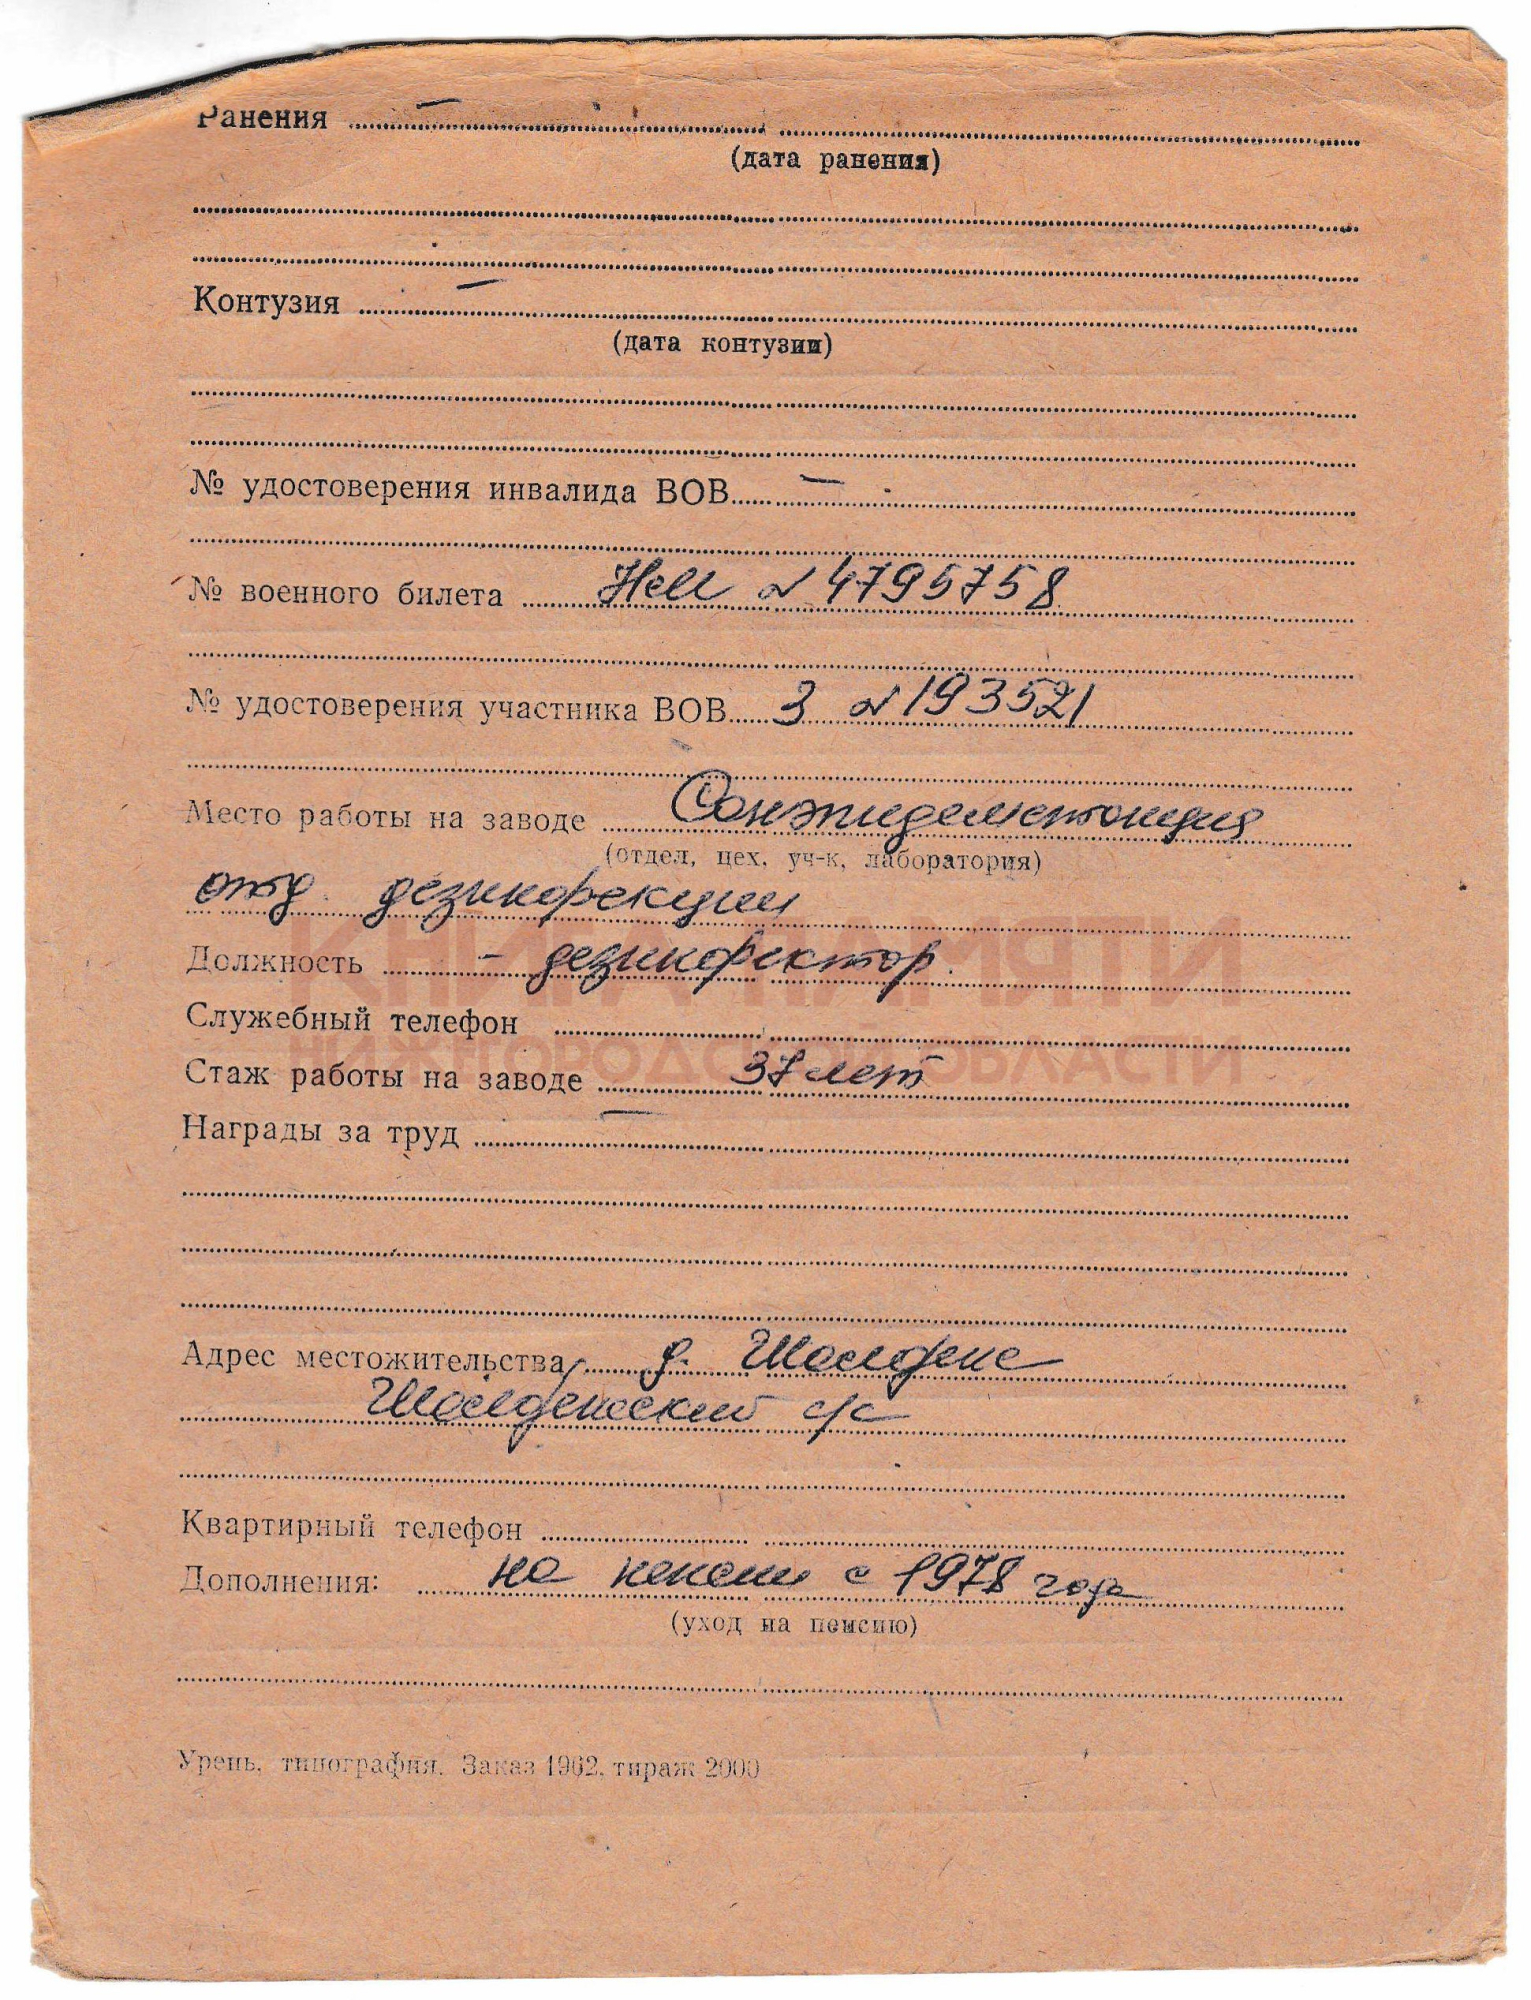 Ранения –
(дата ранения)
Контузия –
(дата контузии)
№ удостоверения инвалида ВОВ –
№ военного билета № 4795758
№ удостоверения участника ВОВ 3 № 193521
Место работы на заводе Санэпидемстанция
(отдел, цех, уч-к, лаборатория)
отд. дезинфекции
КНИГА ПАМЯТИ
Должность – дезинфектор.
Служебный телефон
НИЖЕГОРОДСКОЙ ОБЛАСТИ
Стаж работы на заводе 37 лет
Награды за труд –
Адрес местожительства д.
с/с
Квартирный телефон
Дополнения: на пенсии с 1978 года
(уход на пенсию)
Урень, типография. Заказ 1962, тираж 2000